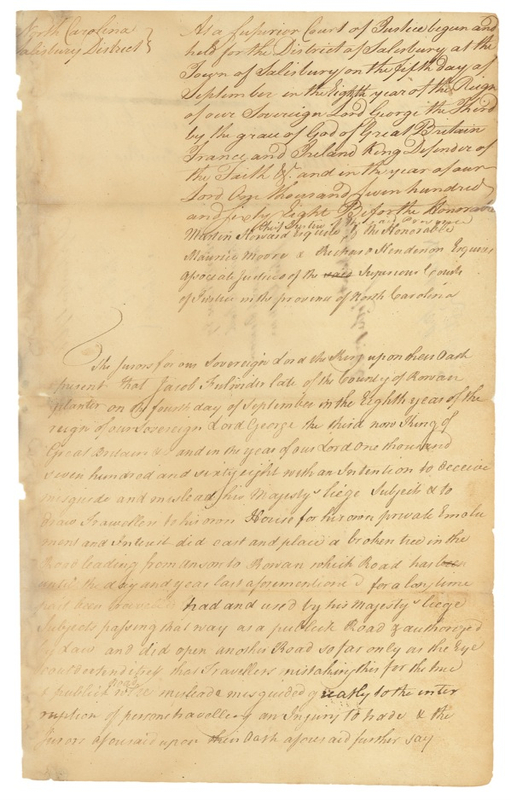 North Carolina
Salisbury District
At a Superior Court of Justice begun and
held for the District of Salisbury at the
Town of Salisbury on the fifth day of
September in the Eighth year of the Reign
of our Sovereign Lord George the Third
by the grace of God of Great Britain
France and Ireland King Defender of
the Faith &c and in the year of our
Lord One Thousand Seven hundred
and sixty Eight Before the Honorable
Chief Justice of said Province
Martin Howard Esquire & the Honorable
Maurice Moore & Richard Henderson Esquires
Associate Justices of the said Superior Courts
of Justice in the province of North Carolina
The Jurors for our Sovereign Lord the King upon their Oath
present that Jacob late of the County of Rowan
planter on the fourth day of September in the Eighth year of the
reign of our Sovereign Lord George the third now King of
Great Britain &c and in the year of our Lord One thousand
seven hundred and sixty eight with an Intention to deceive
misguide and mislead his Majesty's liege Subjects & to
draw Travellers to his own House for his own private Emolu
ment and Interest did cast and place a broken tree in the
Road leading from Anson to Rowan which Road has been
until the day and year last aforementioned for a long time
past been travelled had and used by his Majesty's liege
Subjects passing that way as a publick Road & authorized
by Law and did open another Road so far only as the Eye
could extend itself that Travellers mistaking this for the true
Road
& publick were mislead & misguided greatly to the inter
ruption of persons travelling an Injury to trade & the
Jurors aforesaid upon their Oath aforesaid further say